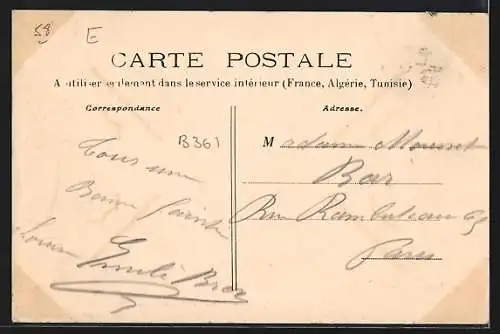 58
E
CARTE POSTALE
A utiliser seulement dans le service intérieur (France, Algérie, Tunisie)
Correspondance
Adresse.
B361
Tous une
Bonne
Emile
Madame Mounet
Bar
Rue Rambuteau 65
Paris